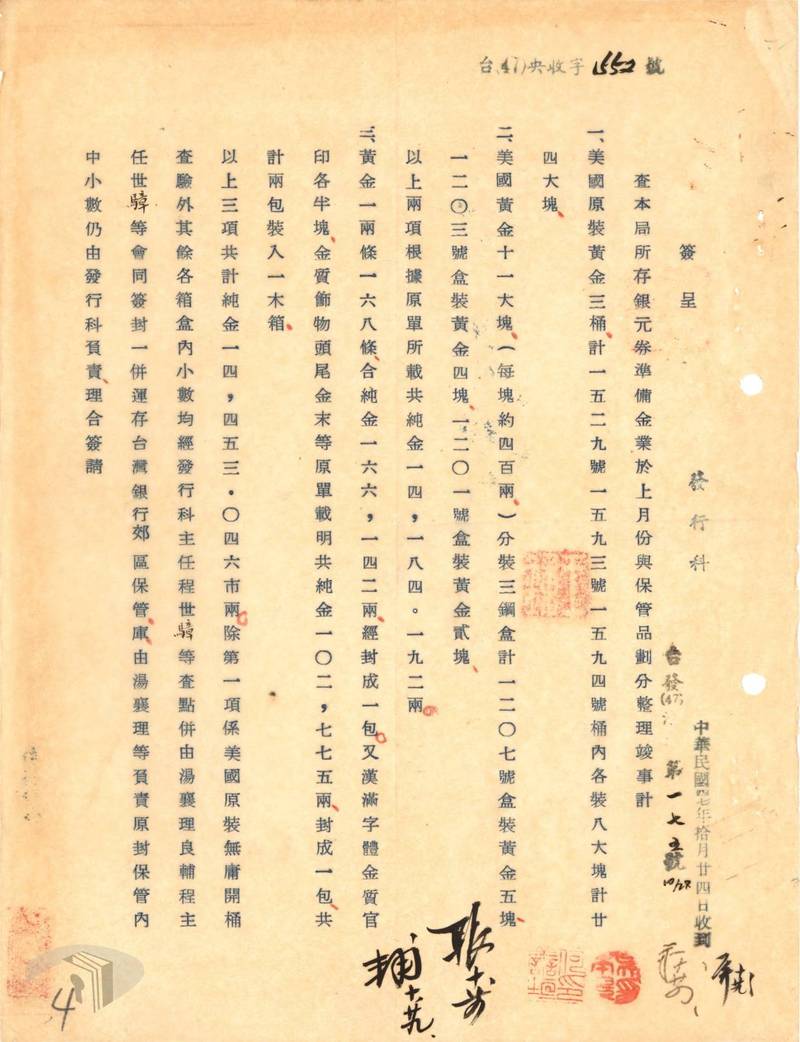 台(47)央收字1552號
中華民國四七年拾月廿四日收到
發行科
台發(47)
第一七五號
10/28
簽呈
查本局所存銀元券準備金業於上月份與保管品劃分整理竣事計
一、美國原裝黃金三桶計一五二九號一五九三號一五九四號桶內各裝八大塊計廿
四大塊
二、美國黃金十一大塊(每塊約四百兩)分裝三鋼盒計一二〇七號盒裝黃金五塊
一二〇三號盒裝黃金四塊一二〇一號盒裝黃金貳塊
以上兩項根據原單所載共純金一四,一八四。一九二兩
三、黃金一兩條一六八條合純金一六六,一四二兩經封成一包又漢滿字體金質官
印各半塊金質飾物頭尾金末等原單載明共純金一〇二,七七五兩封成一包共
計兩包裝入一木箱
以上三項共計純金一四,四五三.〇四六市兩除第一項係美國原裝無庸開桶
查驗外其餘各箱盒內小數均經發行科主任程世騿等查點併由湯襄理良輔程主
任世騿等會同簽封一併運存台灣銀行郊區保管庫由湯襄理等負責原封保管內
中小數仍由發行科負責理合簽請
張十廿
輔十廿九
4